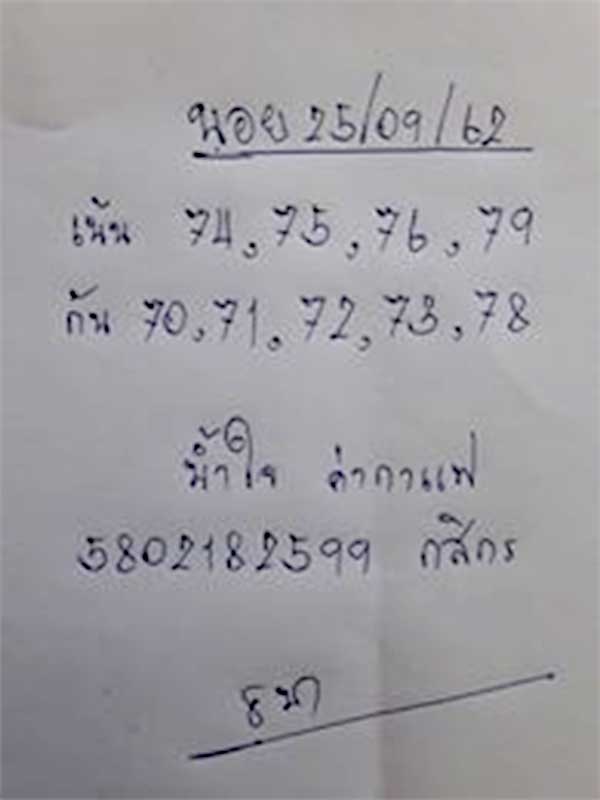 นอย 25/09/62
เน้น 74, 75, 76, 79
กัน 70, 71, 72, 73, 78
น้ำใจ ค่ากาแฟ
5802182599 กสิกร
ธนา